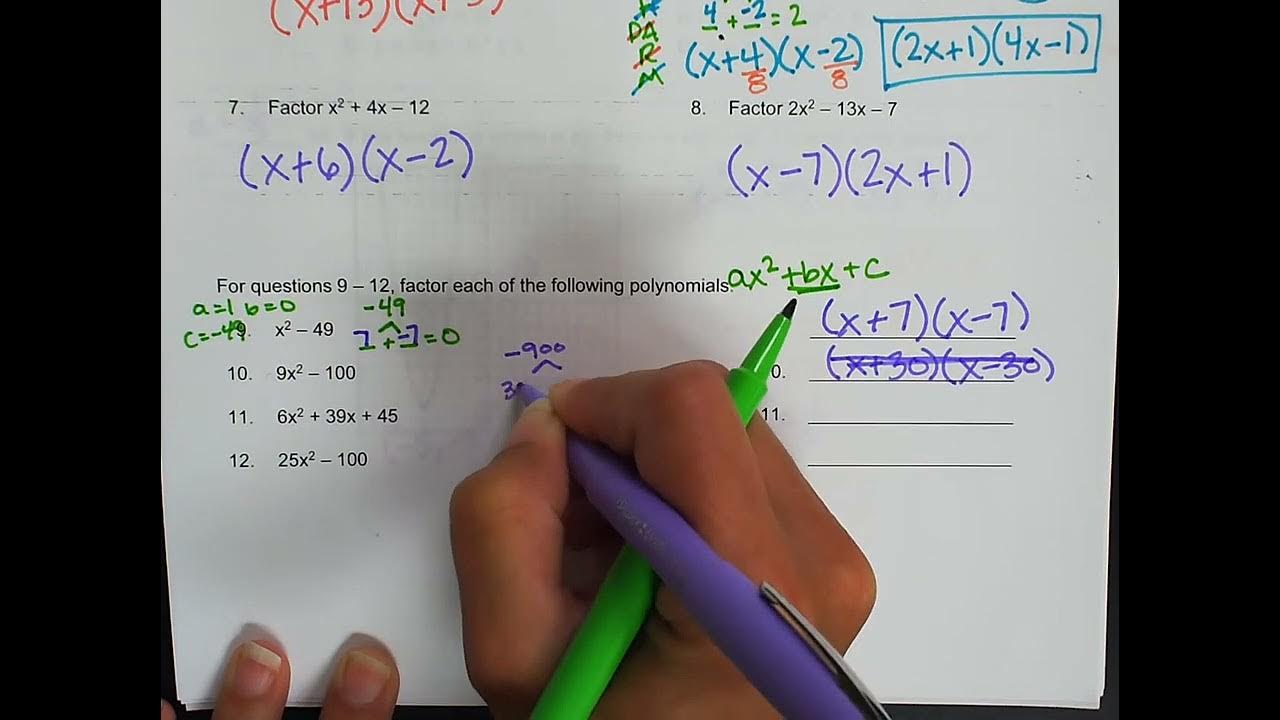 (x+15)(x+3)
4 + -2 = 2
DA
R
M
(x+4/8)(x-2/8) (2x+1)(4x-1)
7. Factor x² + 4x – 12
8. Factor 2x² – 13x – 7
(x+6)(x-2)
(x-7)(2x+1)
For questions 9 – 12, factor each of the following polynomials.
ax²+bx+c
a=1 b=0
c=-49
-49
9. x² – 49
7 + -7 = 0
(x+7)(x-7)
10. 9x² – 100
-900
30
0. (x+30)(x-30)
11. 6x² + 39x + 45
11.
12. 25x² – 100